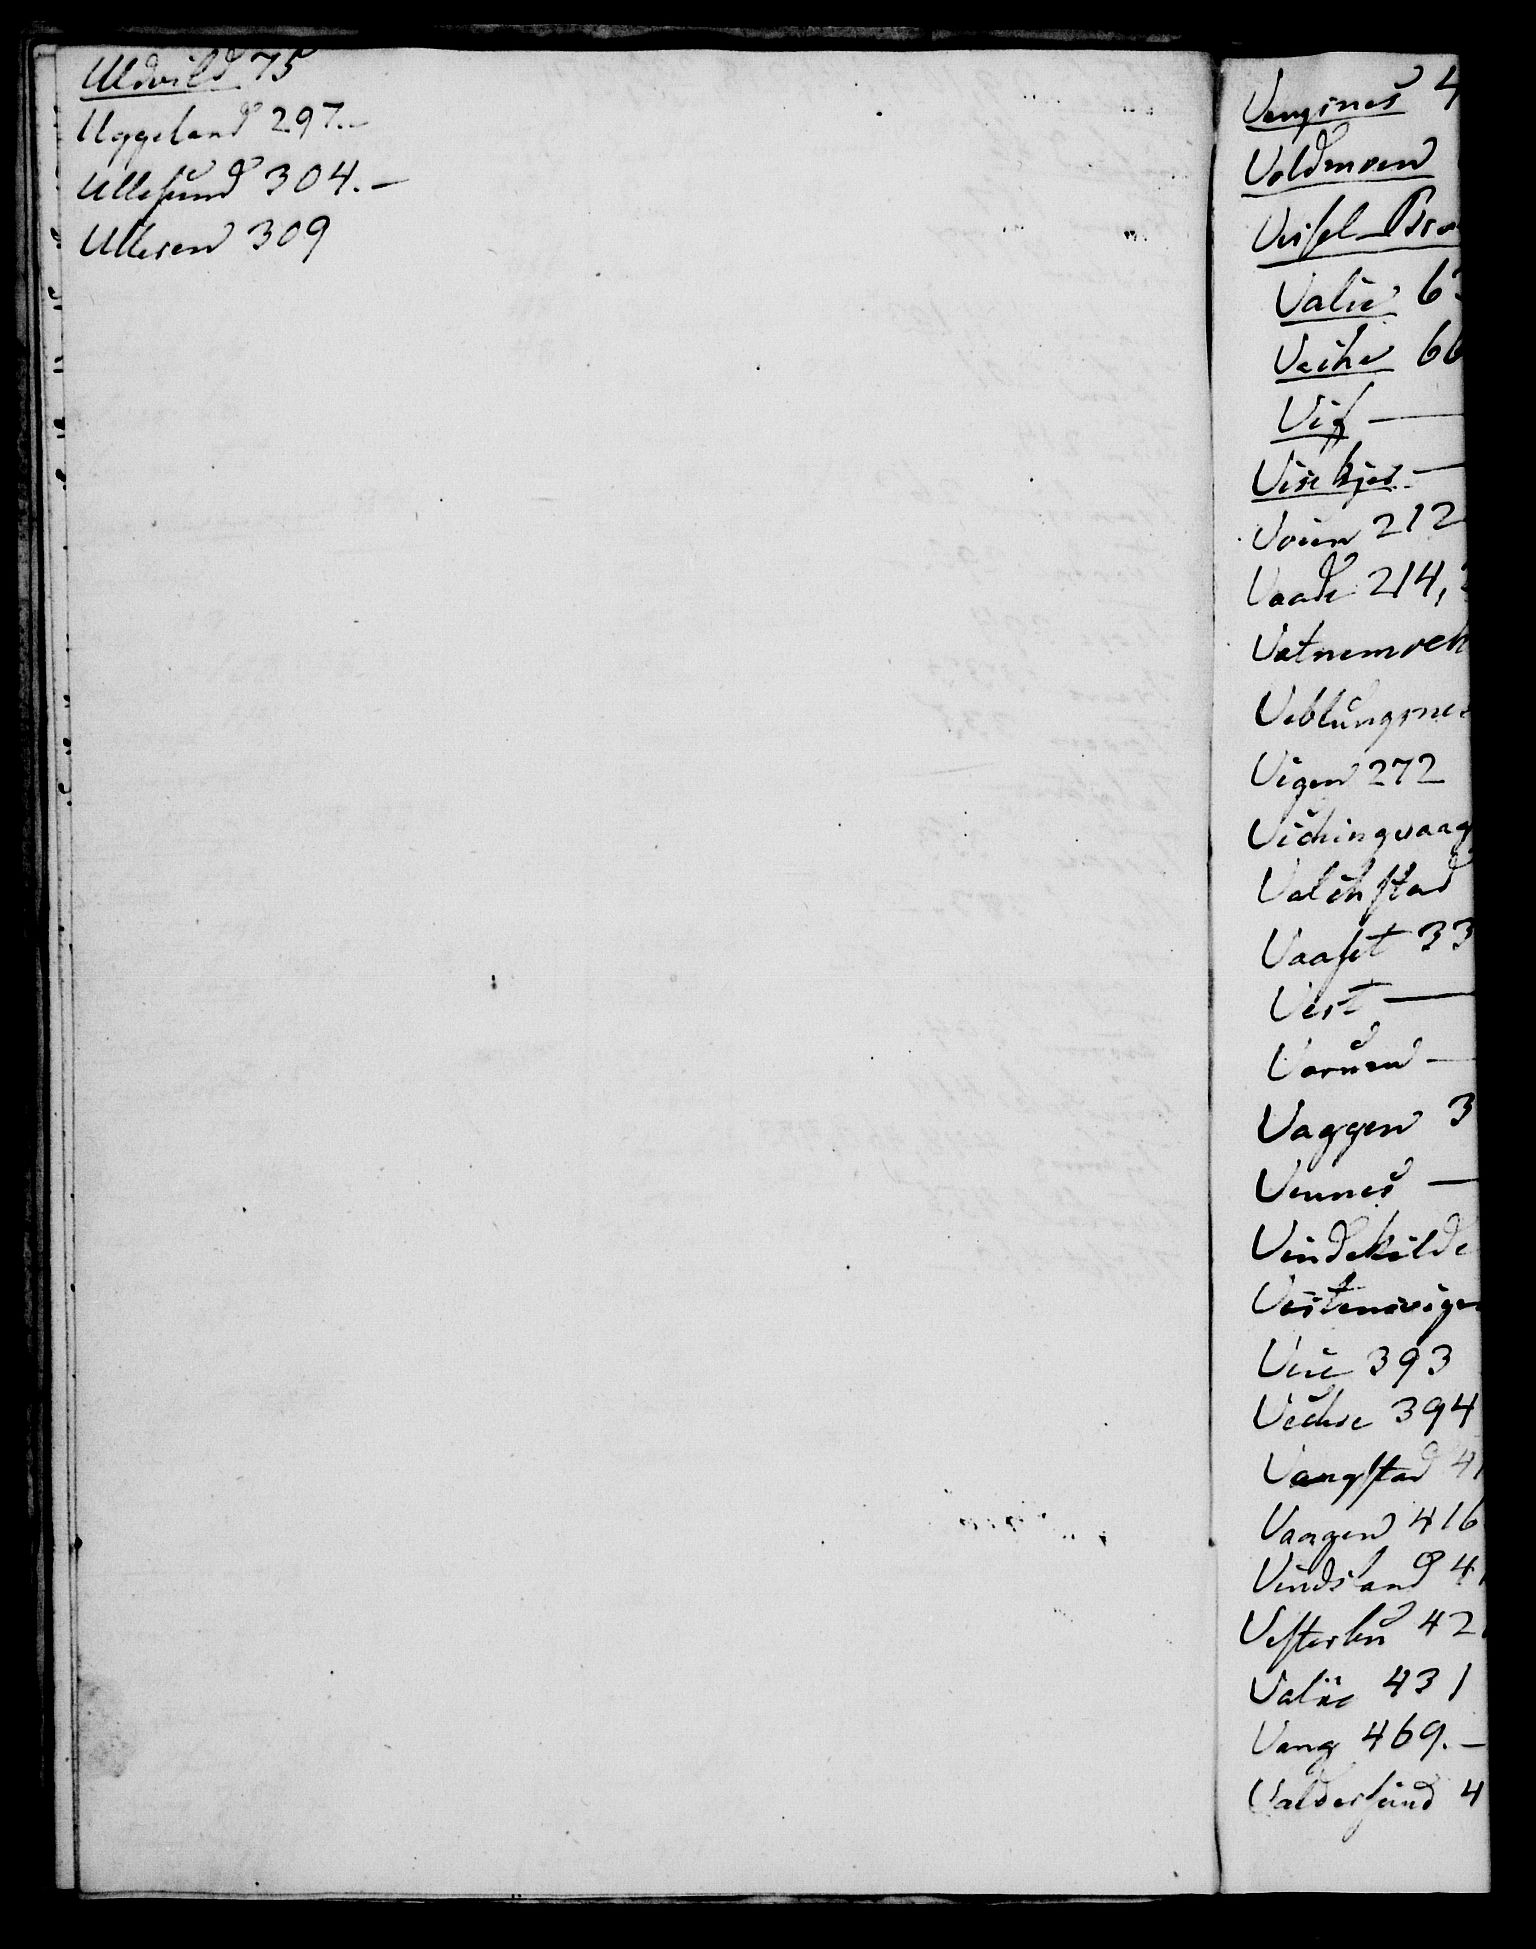 Uldvild 75
Uggeland 297.-
Ullesund 304.-
Ulleren 309
Vengsnes 4
Voldmoen
Veisel-Bro
Valie 6
Veihe 66
Vig —
Visekjer —
Voien 212
Vaade 214,
Vatnemoen
Veblungsnes
Vigen 272
Vichingvaag
Valchstad
Vaaset 33
Vest —
Voruen —
Vaggen 3
Vennes —
Vindekilde
Vestensvigen
Veie 393
Vechse 394
Vangstad 41
Vaagen 416
Vindsland 4
Vesterbu 42
Valiie 431
Vang 469.-
Valdersund 4